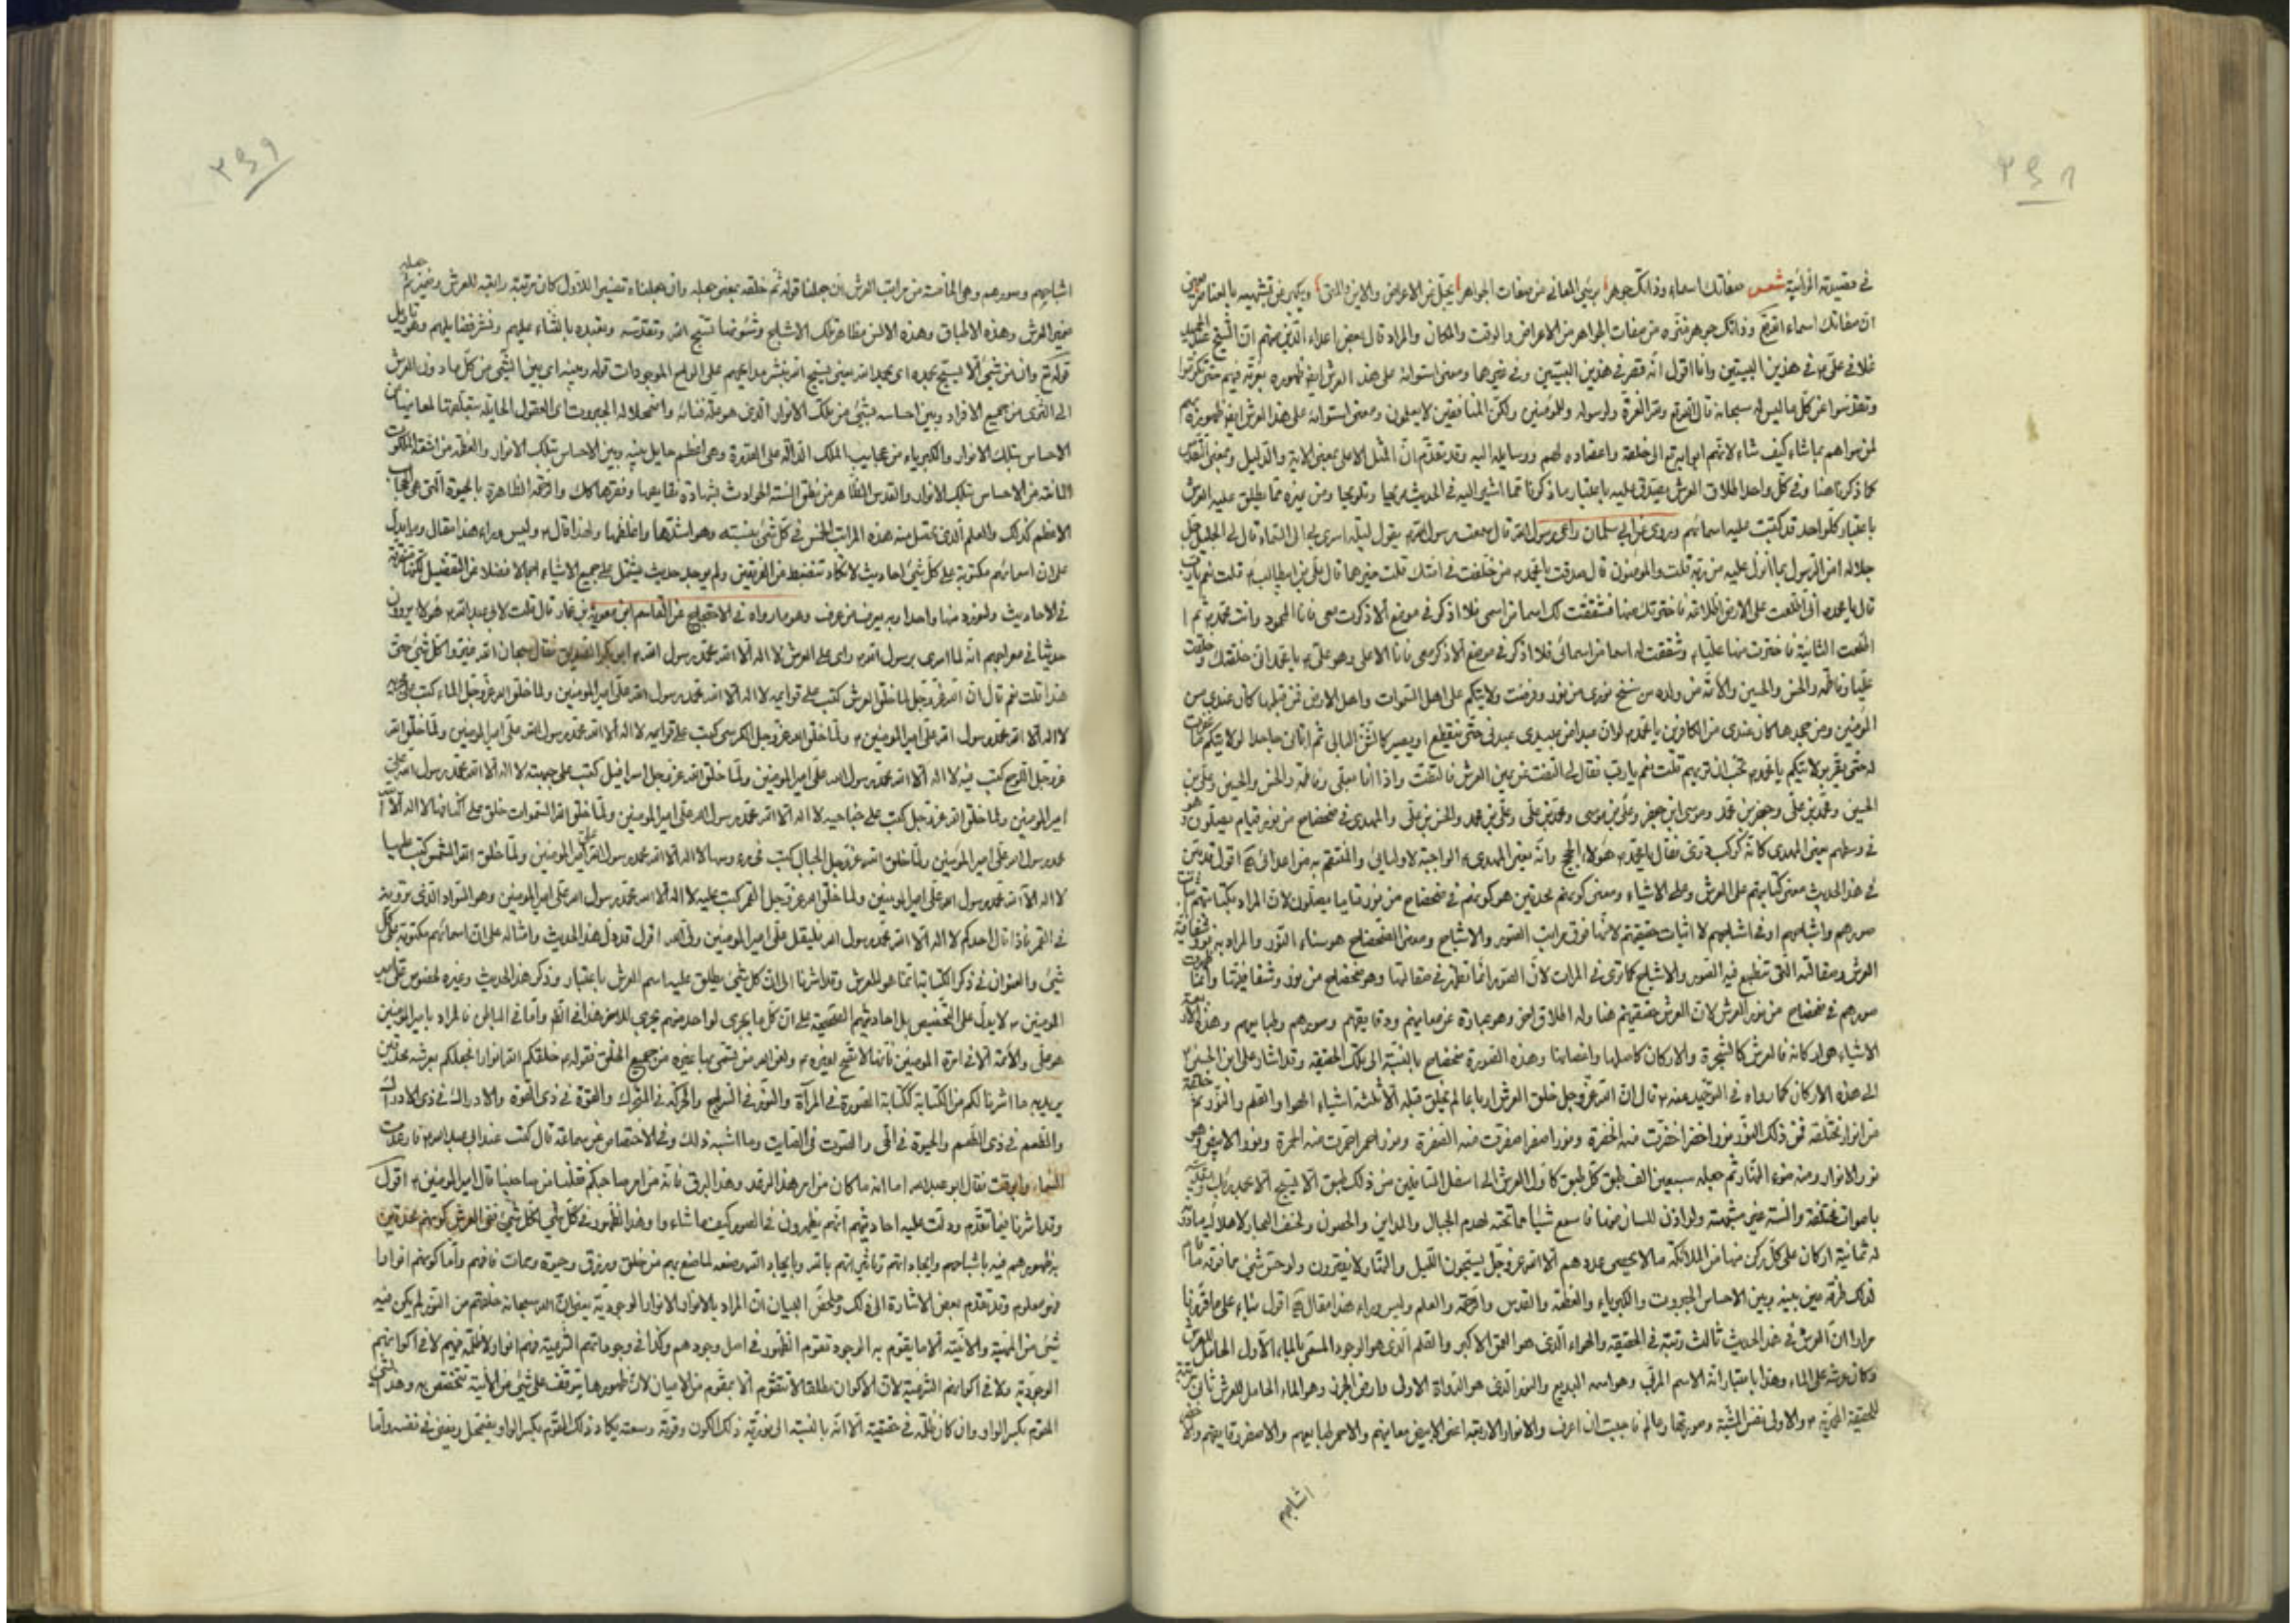 في قصيدته الرائية شعر صفاتك اسماء وذاتك جوهر برئ المعاني من صفات الجواهر يجل عن الاعراض والاين والمتى ويكبر عن تشبيهه بالعناصر
ان صفاتك اسماء الله تعالى وذاتك جوهر منزه من صفات الجواهر من الاعراض والوقت والمكان والمراد قال بعض اعداء الدين منهم ان الشيخ عبد الحميد
غلا في علي في هذين البيتين وانا اقول انه قصر في هذين البيتين وفي غيرهما ومعنى استوائه على هذا العرش ايضا ظهوره بعزته فيهم حتى تكبروا
وتقدسوا عن كل ما ليس له سبحانه قال الله تعالى ولله العزة ولرسوله وللمؤمنين ولكن المنافقين لا يعلمون ومعنى استوائه على هذا العرش ايضا ظهوره
لمن سواهم بما شاء كيف شاء لانهم ابوابه الى خلقه واعضاده لهم ووسايله اليه وقد تقدم ان المثل الاعلى بمعنى الاية والدليل وبمعنى
كما ذكرنا هنا وفي كل واحد اطلاق العرش يصدق عليه باعتبار ما ذكرنا مما اشير اليه في الحديث صريحا وتلويحا ومن غيره مما يطلق عليه العرش
باعتبار كل واحد قد كتبت عليه اسمائهم وروي عن ابي سلمان راعي رسول الله قال سمعت رسول الله يقول ليلة اسري بي الى السماء قال لي الجليل جل
جلاله امن الرسول بما انزل عليه من ربه قلت والمؤمنون قال صدقت يا محمد من خلفت في امتك قلت خيرها قال علي بن ابيطالب قلت نعم يا رب
قال يا محمد اني اطلعت على الارض اطلاعة فاخترتك منها فشققت لك اسما من اسمي فلا اذكر في موضع الا ذكرت معي فانا المحمود وانت محمد ثم
اطلعت الثانية فاخترت منها عليا وشققت له اسما من اسمائي فلا اذكر في موضع الا ذكر معي فانا الاعلى وهو علي يا محمد اني خلقتك وخلقت
عليا وفاطمة والحسن والحسين والائمة من ولده من سنخ نوري من نور وفرضت ولايتكم على اهل السموات واهل الارض فمن قبلها كان عندي من
المؤمنين ومن جحدها كان عندي من الكافرين يا محمد لو ان عبدا من عبيدي عبدني حتى ينقطع او يصير كالشن البالي ثم اتاني جاحدا لولايتكم ما غفرت
له حتى يقر بولايتكم يا محمد تحب ان تريهم قلت نعم يا رب فقال لي التفت عن يمين العرش فالتفت واذا انا بعلي وفاطمة والحسن والحسين وعلي بن
الحسين ومحمد بن علي وجعفر بن محمد وموسى ابن جعفر وعلي بن موسى ومحمد بن علي وعلي بن محمد والحسن بن علي والمهدي في ضحضاح من نور قيام يصلون وهو
في وسطهم يعني المهدي كانه كوكب دري فقال يا محمد هؤلاء الحجج وانه يعني المهدي الواجبة لاوليائي والمنتقم به من اعدائي اقول قد بين
في هذا الحديث معنى كتابتهم على العرش وعلى الاشياء ومعنى كونهم محدقين هو كونهم في ضحضاح من نور قياما يصلون لان المراد بكتابتهم
صورهم واشباحهم او في اشباحهم لا اثبات حقيقتهم لانها فوق مراتب الصور والاشباح ومعنى الضحضاح هو سناء النور والمراد به
العرش ومقالته التي تنطبع فيه الصور والاشباح كما ترى في المرات لان الصور انما تظهر في مقالتها وهو ضحضاح من نور وشفافيتها وانما
صورهم في ضحضاح من نور العرش لان العرش حقيقتهم هنا وله اطلاق اخر وهو عبارة عن معانيهم ودقايقهم وصورهم وطبايعهم وهذه
الاشياء هو اركانه فالعرش كالشجرة والاركان كاصلها واغصانها وهذه الصورة ضحضاح بالنسبة الى تلك الحقيقة وقد اشار علي ابن الحسين
الى هذه الاركان كما رواه في التوحيد عنه قال ان الله عز وجل خلق العرش ارباعا لم يخلق قبله الا ثلثة اشياء الهوا والقلم والنور ثم خلقه
من انوار مختلفة فمن ذلك النور نور اخضر اخضرت منه الخضرة ونور اصفر اصفرت منه الصفرة ونور احمر احمرت منه الحمرة ونور الابيض وهو
نور الانوار ومنه ضوء النهار ثم جعله سبعين الف طبق كل طبق كاول العرش الى اسفل السافلين من ذلك طبق الا يسبح بحمد ربه
باصوات مختلفة والسنة غير مشتبهة ولو اذن للسان منها فاسمع شيئا مما تحته لهدم الجبال والمداين والحصون ولخسف البحار ولاهلك ما دونه
له ثمانية اركان على كل ركن منها من الملائكة ما لا يحصى عددهم الا الله عز وجل يسبحون الليل والنهار لا يفترون ولو حس شئ مما فوقه ما قام
لذلك طرفة عين بينه وبين الاحساس الجبروت والكبرياء والعظمة والقدس والرحمة والعلم وليس وراء هذا مقال اقول بناء على ما قررنا
مرارا ان العرش في هذا الحديث ثالث رتبة في الحقيقة والهواء الذي هو العمق الاكبر والقلم الذي هو الوجود المسمى بالماء الاول الحامل للعرش
وكان عرشه على الماء وهذا باعتبار انه الاسم المربي وهو اسمه البديع والنور الذي هو الدواة الاولى وارض الجرز وهو الماء الحامل للعرش ثاني مرتبة
للحقيقة المحمدية والاولى نفس المشية وصورتها وعالم فاحببت ان اعرف والانوار الاربعة اعني الابيض معانيهم والاحمر طبايعهم والاصفر دقايقهم
اشباحهم
اشباحهم وصورهم وهي الخامسة من مراتب العرش ان جعلنا قوله ثم خلقه بمعنى جعله وان جعلناه تفسيرا للاول كان مرتبة رابعة للعرش وضمير ثم جعله
ضمير العرش وهذه الاطباق وهذه الالسن مظاهر تلك الاشباح وشئونها تسبح الله وتقدسه وتعبده بالثناء عليهم ونشر فضايلهم وهو تاويل
قوله تع وان من شئ الا يسبح بحمده اي بحمد الله يعني يسبح الله بنشر مدائحهم على الواح الموجودات قوله وبينه اي بين الشئ من كل ما دون العرش
الى الثرى من جميع الافراد وبين احساسه بشئ من تلك الانوار الذي هو علة فنائه واضمحلاله الجبروت اي العقول الحايلة
الاحساس بتلك الانوار والكبرياء من عجايب الملك الدالة على القدرة وهي اعظم حايل بينه وبين الاحساس بتلك الانوار والعظمة من اشعة الملكوت
المانعة من الاحساس بتلك الانوار والقدس الظاهر من نطق السنة الحوادث بشهادة نقايصها وفقرها كذلك والرحمة الظاهرة بالحيوة التي هي الحجاب
الاعظم كذلك والعلم الذي يحصل منه هذه المراتب الخمس في كل شئ بنسبته وهو اشدها واغلظها ولهذا قال وليس وراء هذا مقال ومما يدل
على ان اسمائهم مكتوبة على كل شئ احاديث لا تكاد تنضبط من الفريقين ولم يوجد حديث يشتمل على جميع الاشياء اجمالا فضلا عن التفصيل لكنها متفرقة
في الاحاديث ولنورد منها واحدا وبه يعرف من عرف وهو ما رواه في الاحتجاج عن القاسم ابن معوية بن عمار قال قلت لابي عبد الله هؤلاء يروون
حديثا في معراجهم انه لما اسري برسول الله راى على العرش لا اله الا الله محمد رسول الله ابو بكر الصديق فقال سبحان الله غيروا كل شئ حتى
هذا قلت نعم قال ان الله عز وجل لما خلق العرش كتب على قوايمه لا اله الا الله محمد رسول الله علي امير المؤمنين ولما خلق الله عز وجل الماء كتب على مجراه
لا اله الا الله محمد رسول الله علي امير المؤمنين ولما خلق الله عز وجل الكرسي كتب على قوايمه لا اله الا الله محمد رسول الله علي امير المؤمنين ولما خلق الله
عز وجل اللوح كتب فيه لا اله الا الله محمد رسول الله علي امير المؤمنين ولما خلق الله عز وجل اسرافيل كتب على جبهته لا اله الا الله محمد رسول الله علي
امير المؤمنين ولما خلق الله عز وجل كتب على جناحيه لا اله الا الله محمد رسول الله علي امير المؤمنين ولما خلق الله السموات خلق على اكنافها لا اله الا الله
محمد رسول الله علي امير المؤمنين ولما خلق الله عز وجل الجبال كتب في رؤسها لا اله الا الله محمد رسول الله علي امير المؤمنين ولما خلق الله الشمس كتب عليها
لا اله الا الله محمد رسول الله علي امير المؤمنين ولما خلق الله عز وجل القمر كتب عليه لا اله الا الله محمد رسول الله علي امير المؤمنين وهو السواد الذي ترونه
في القمر فاذا قال احدكم لا اله الا الله محمد رسول الله فليقل علي امير المؤمنين ولي الله اقول قد دل هذا الحديث وامثاله على ان اسمائهم مكتوبة على كل
شئ والعنوان في ذكر الكتابة انما هو للعرش وقد اشرنا الى ان كل شئ يطلق عليه اسم العرش باعتبار وذكر هذا الحديث وغيره لخصوص علي امير
المؤمنين لا يدل على التخصيص بل احاديثهم الصحيحة على ان كل ما يجري لواحد منهم يجري للاخر هذا في الظاهر واما في الباطن فالمراد بامير المؤمنين
هو علي والائمة الا في امرة المؤمنين فانها لا تصح لغيره ولعن الله من تسمى بها غيره من جميع الخلق فقوله خلقكم الله انوارا فجعلكم بعرشه محدقين
يريد به ما اشرنا لكم من الكتابة ككتابة الصورة في المرآة والنور في السراج والحركة في المتحرك والقوة في ذي القوة والادراك في ذي الادراك
والطعم في ذي الطعم والحيوة في الحي والصوت في الصايت وما اشبه ذلك وفي الاختصاص عن سماعة قال كنت عند ابي عبد الله فارعدت
السماء وابرقت فقال ابو عبد الله اما انه ما كان من امر هذا الرعد وهذا البرق فانه من امر صاحبكم فقلنا من صاحبنا قال امير المؤمنين اقول
وقد اشرنا فيما تقدم ودلت عليه احاديثهم انهم يظهرون في الصور كيف ما شاءوا وهذا الظهور في كل شئ لكل شئ فهي العرش كونهم محدقين
به ظهورهم فيه باشباحهم وايجاداتهم وتاثيراتهم بالله وبايجاد الله وصنعه لما صنع بهم من خلق ورزق وحيوة وممات فافهم واما كونهم انوارا
فهو معلوم وقد تقدم بعض الاشارة الى ذلك وملخص البيان ان المراد بالانوار الانوار الوجودية يعني ان الله سبحانه خلقهم من النور لم يكن فيه
شئ من المهية والانية الا ما يقوم به الوجود تقوم الظهور في اصل وجودهم وكذا في وجوداتهم الشرعية فهم انوار لا ظلمة فيهم لا في اكوانهم
الوجودية ولا في اكوانهم الشرعية لان الاكوان مطلقا لا تتقوم الا بمقوم من الاعيان لان ظهورها يتوقف على شئ من الانية تتخصص به وهذا الشئ
المقوم بكسر الواو وان كان ظلمة في حقيقته الا انه بالنسبة الى نورية ذلك الكون وقوته وسعته يكاد ذلك المقوم بكسر الواو يضمحل ويفنى في نفسه واما